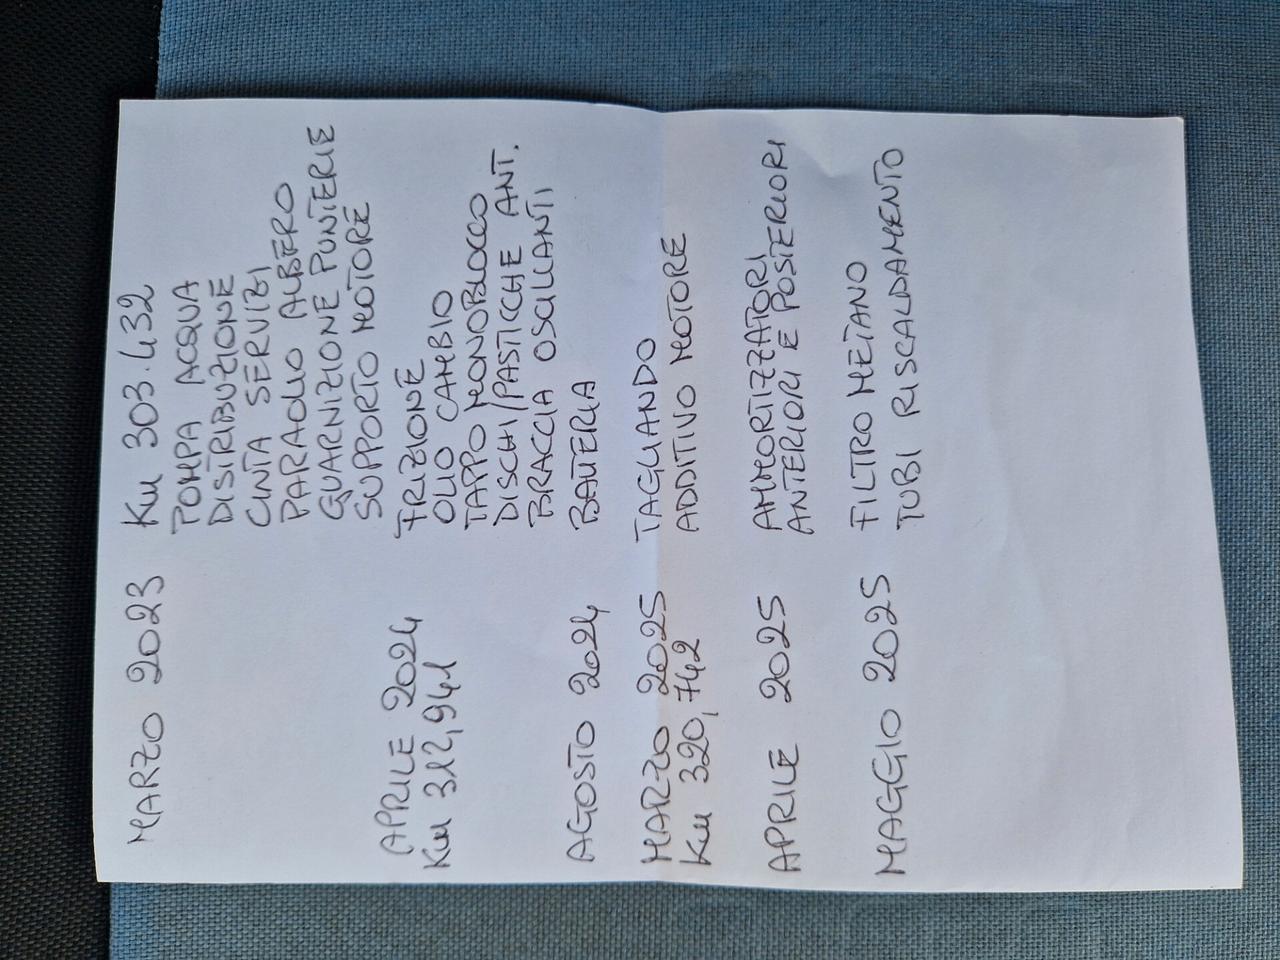 MARZO 2023 KM 303.432
POMPA ACQUA
DISTRIBUZIONE
CINTA SERVIZI
PARAOLIO ALBERO
GUARNIZIONE PUNTERIE
SUPPORTO MOTORE
APRILE 2024 FRIZIONE
KM 312,941 OLIO CAMBIO
TAPPO MONOBLOCCO
DISCHI/PASTICCHE ANT.
BRACCIA OSCILLANTI
AGOSTO 2024 BATTERIA
MARZO 2025 TAGLIANDO
KM 320,742 ADDITIVO MOTORE
APRILE 2025 AMMORTIZZATORI
ANTERIORI E POSTERIORI
MAGGIO 2025 FILTRO METANO
TUBI RISCALDAMENTO